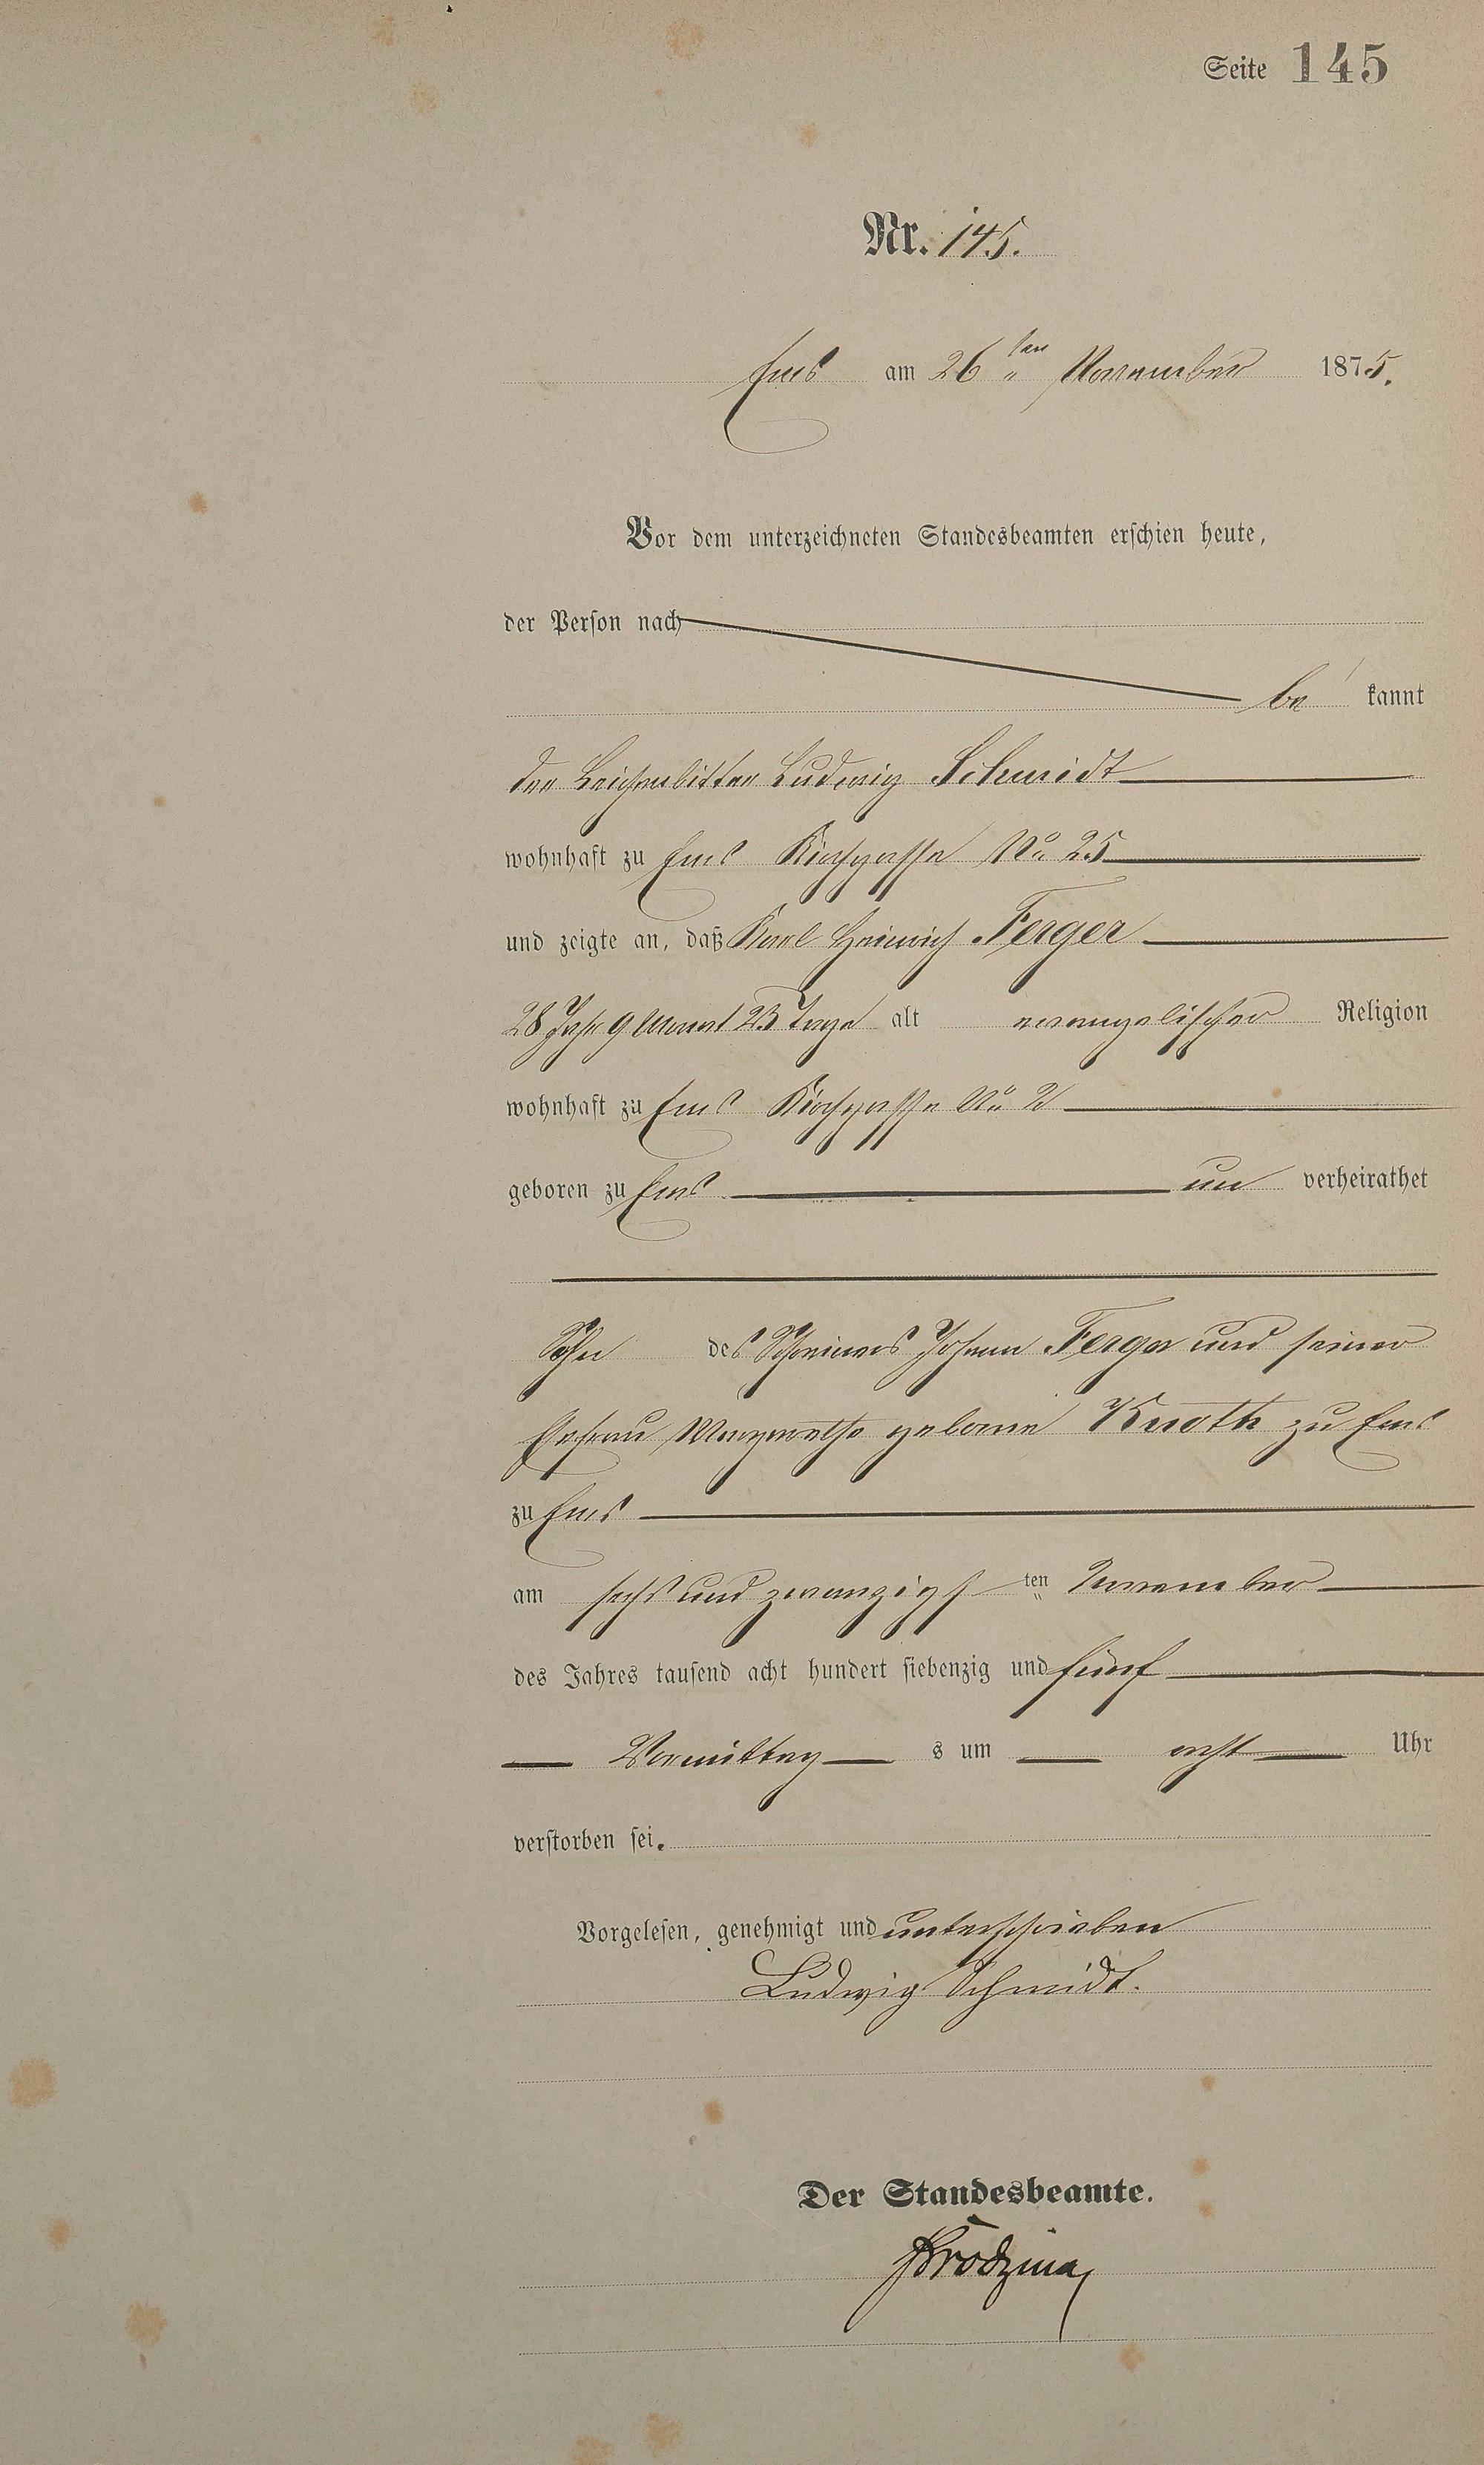 Seite 145
Nr. 145.
Ems am 26ten November 1875.
Vor dem unterzeichneten Standesbeamten erschien heute,
der Person nach
be kannt
der Leichenbitter Ludwig Schmidt
wohnhaft zu Ems Kirchgasse No 25
und zeigte an, daß Karl Heinrich Ferger
28 Jahr 9 Monat 23 Tage alt evangelischer Religion
wohnhaft zu Ems Kirchgasse No
geboren zu Ems un verheirathet
Sohn des Schreiners Johann Ferger und seiner
Ehefrau Margarethe geborne Knoth zu Ems
zu Ems
am sechs und zwanzigsten November
des Jahres tausend acht hundert siebenzig und fünf
Vormittag s um acht Uhr
verstorben sei.
Vorgelesen, genehmigt und unterschrieben
Ludwig Schmidt.
Der Standesbeamte.